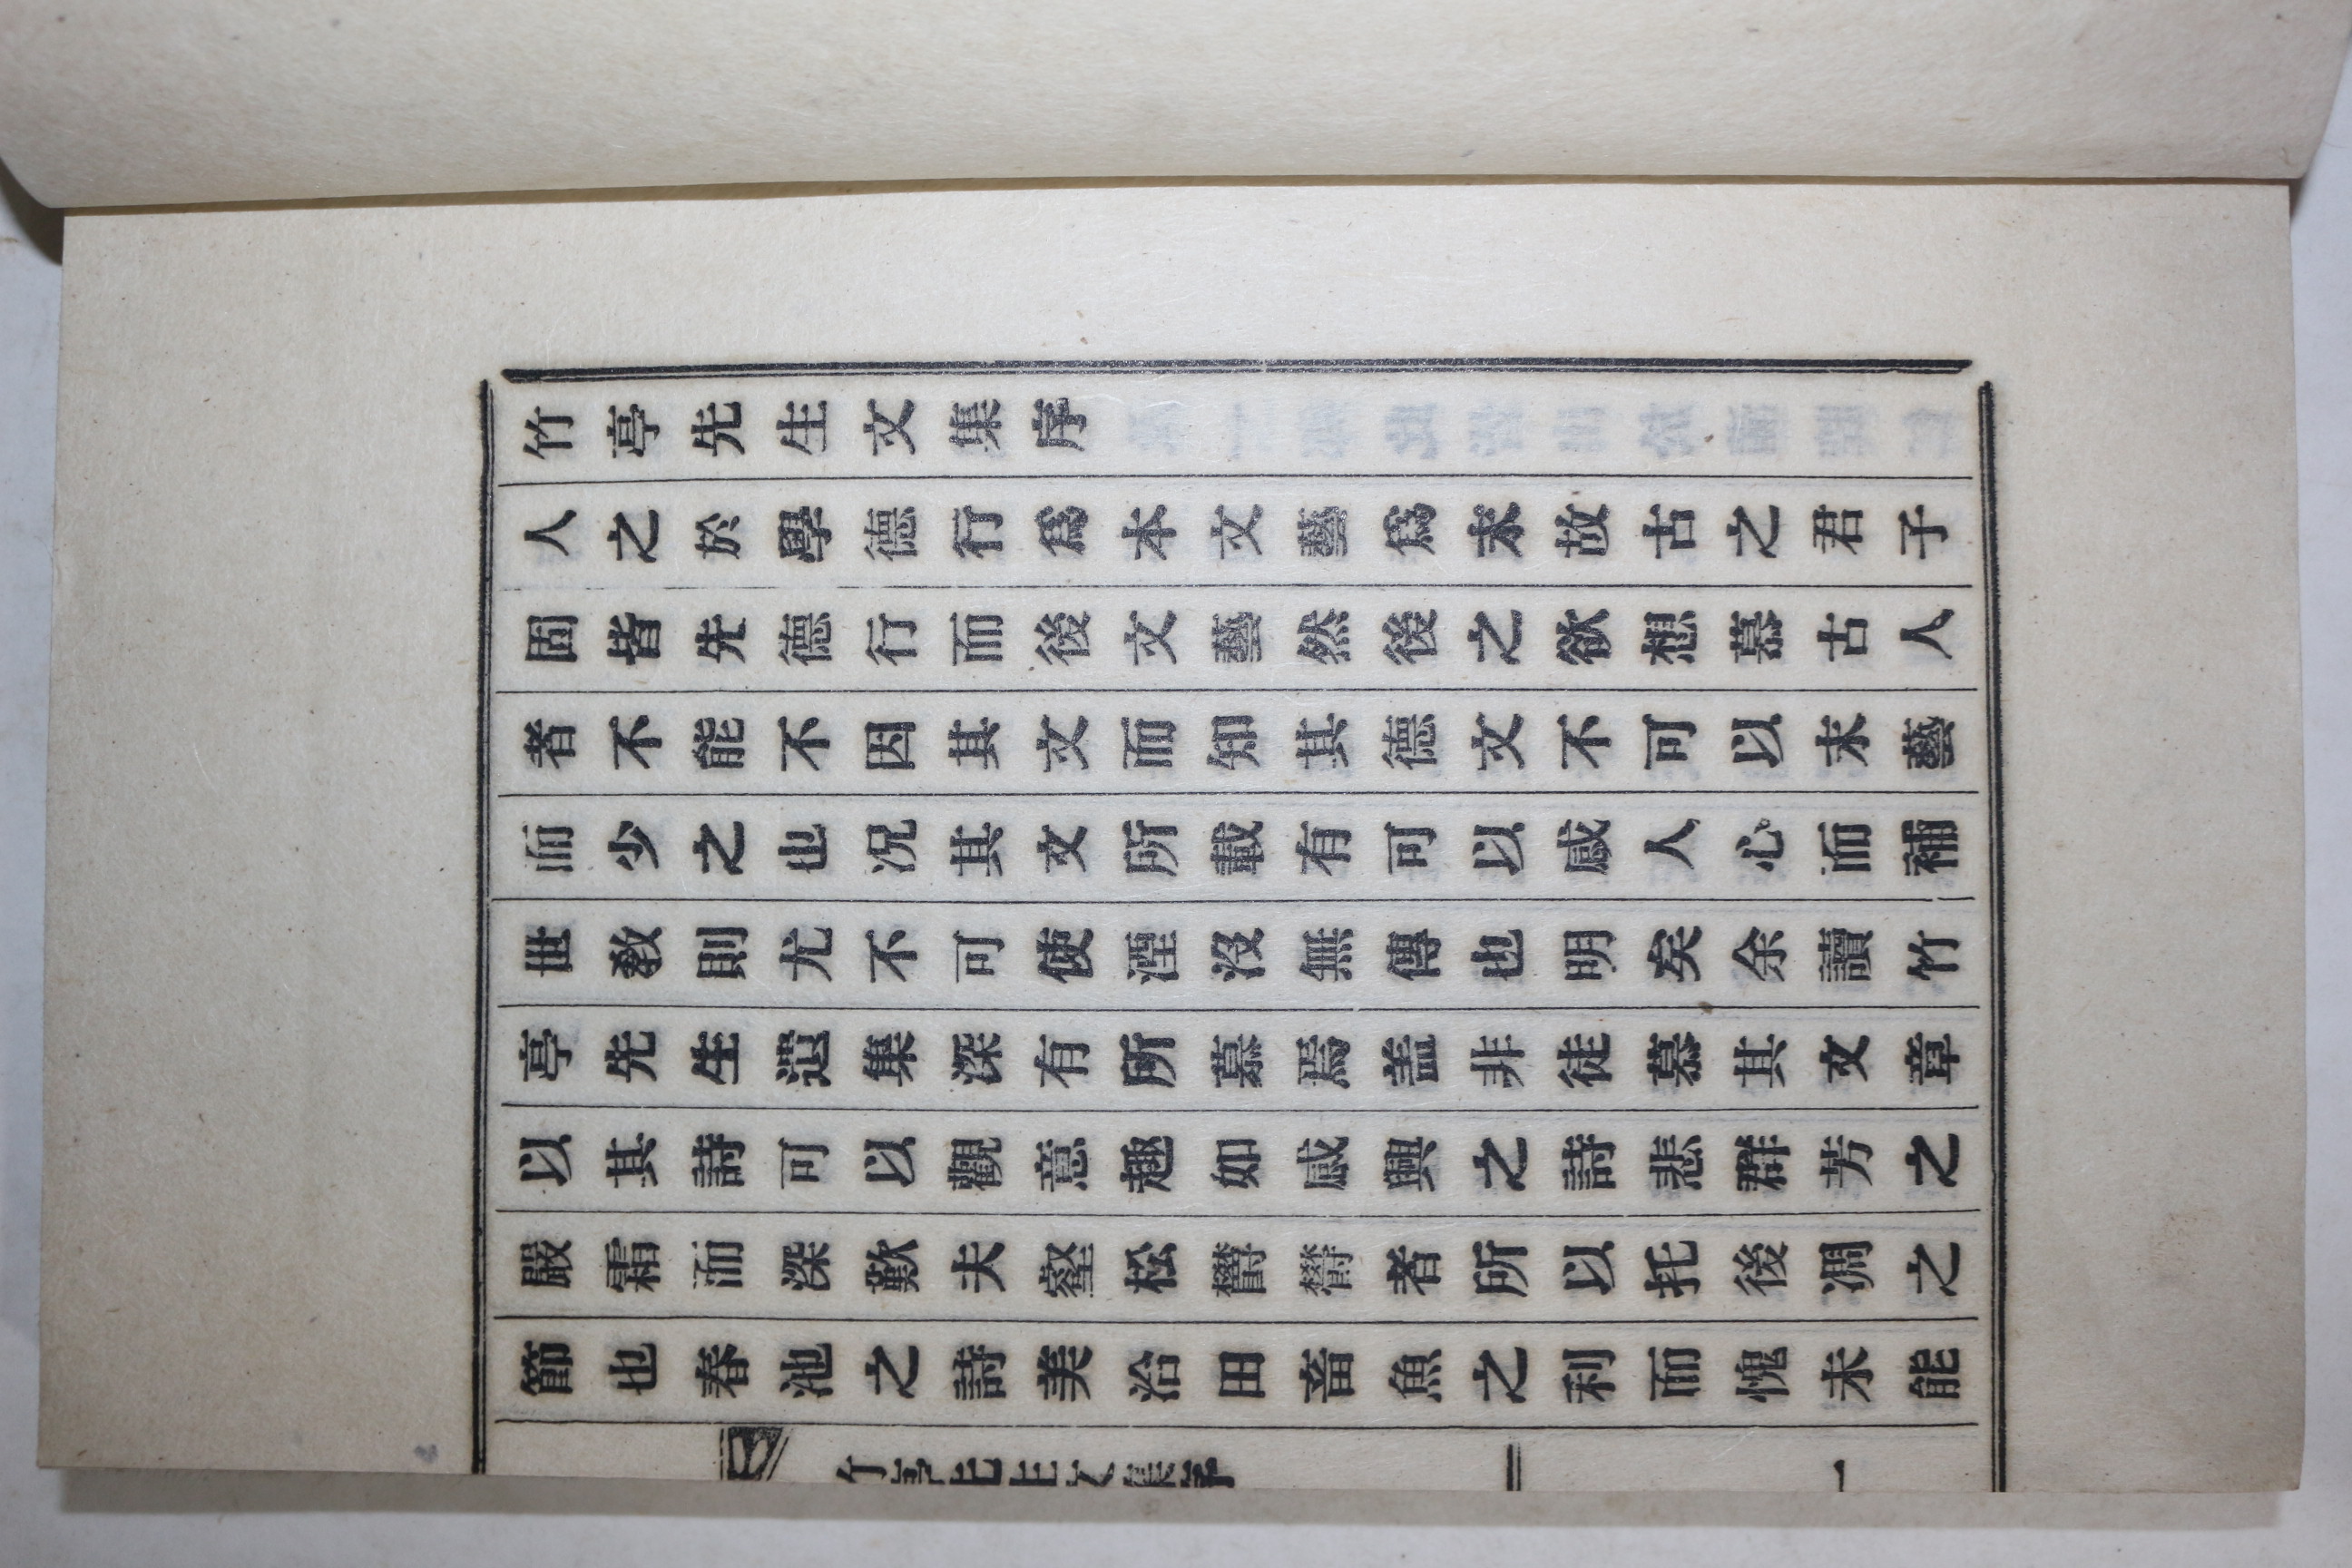 竹亭先生文集序
人之於學德行爲本文藝爲末故古之君子
固皆先德行而後文藝然後之欲想慕古人
者不能不因其文而知其德文不可以末藝
而少之也况其文所載有可以感人心而補
世敎則尤不可使湮沒無傳也明矣余讀竹
亭先生遺集深有所慕焉盖非徒慕其文章
以其詩可以觀意趣如感興之詩悲群芳之
嚴霜而深歎夫壑松欝欝者所以托後凋之
節也春池之詩美洽田畜魚之利而愧未能
竹亭先生文集序
一